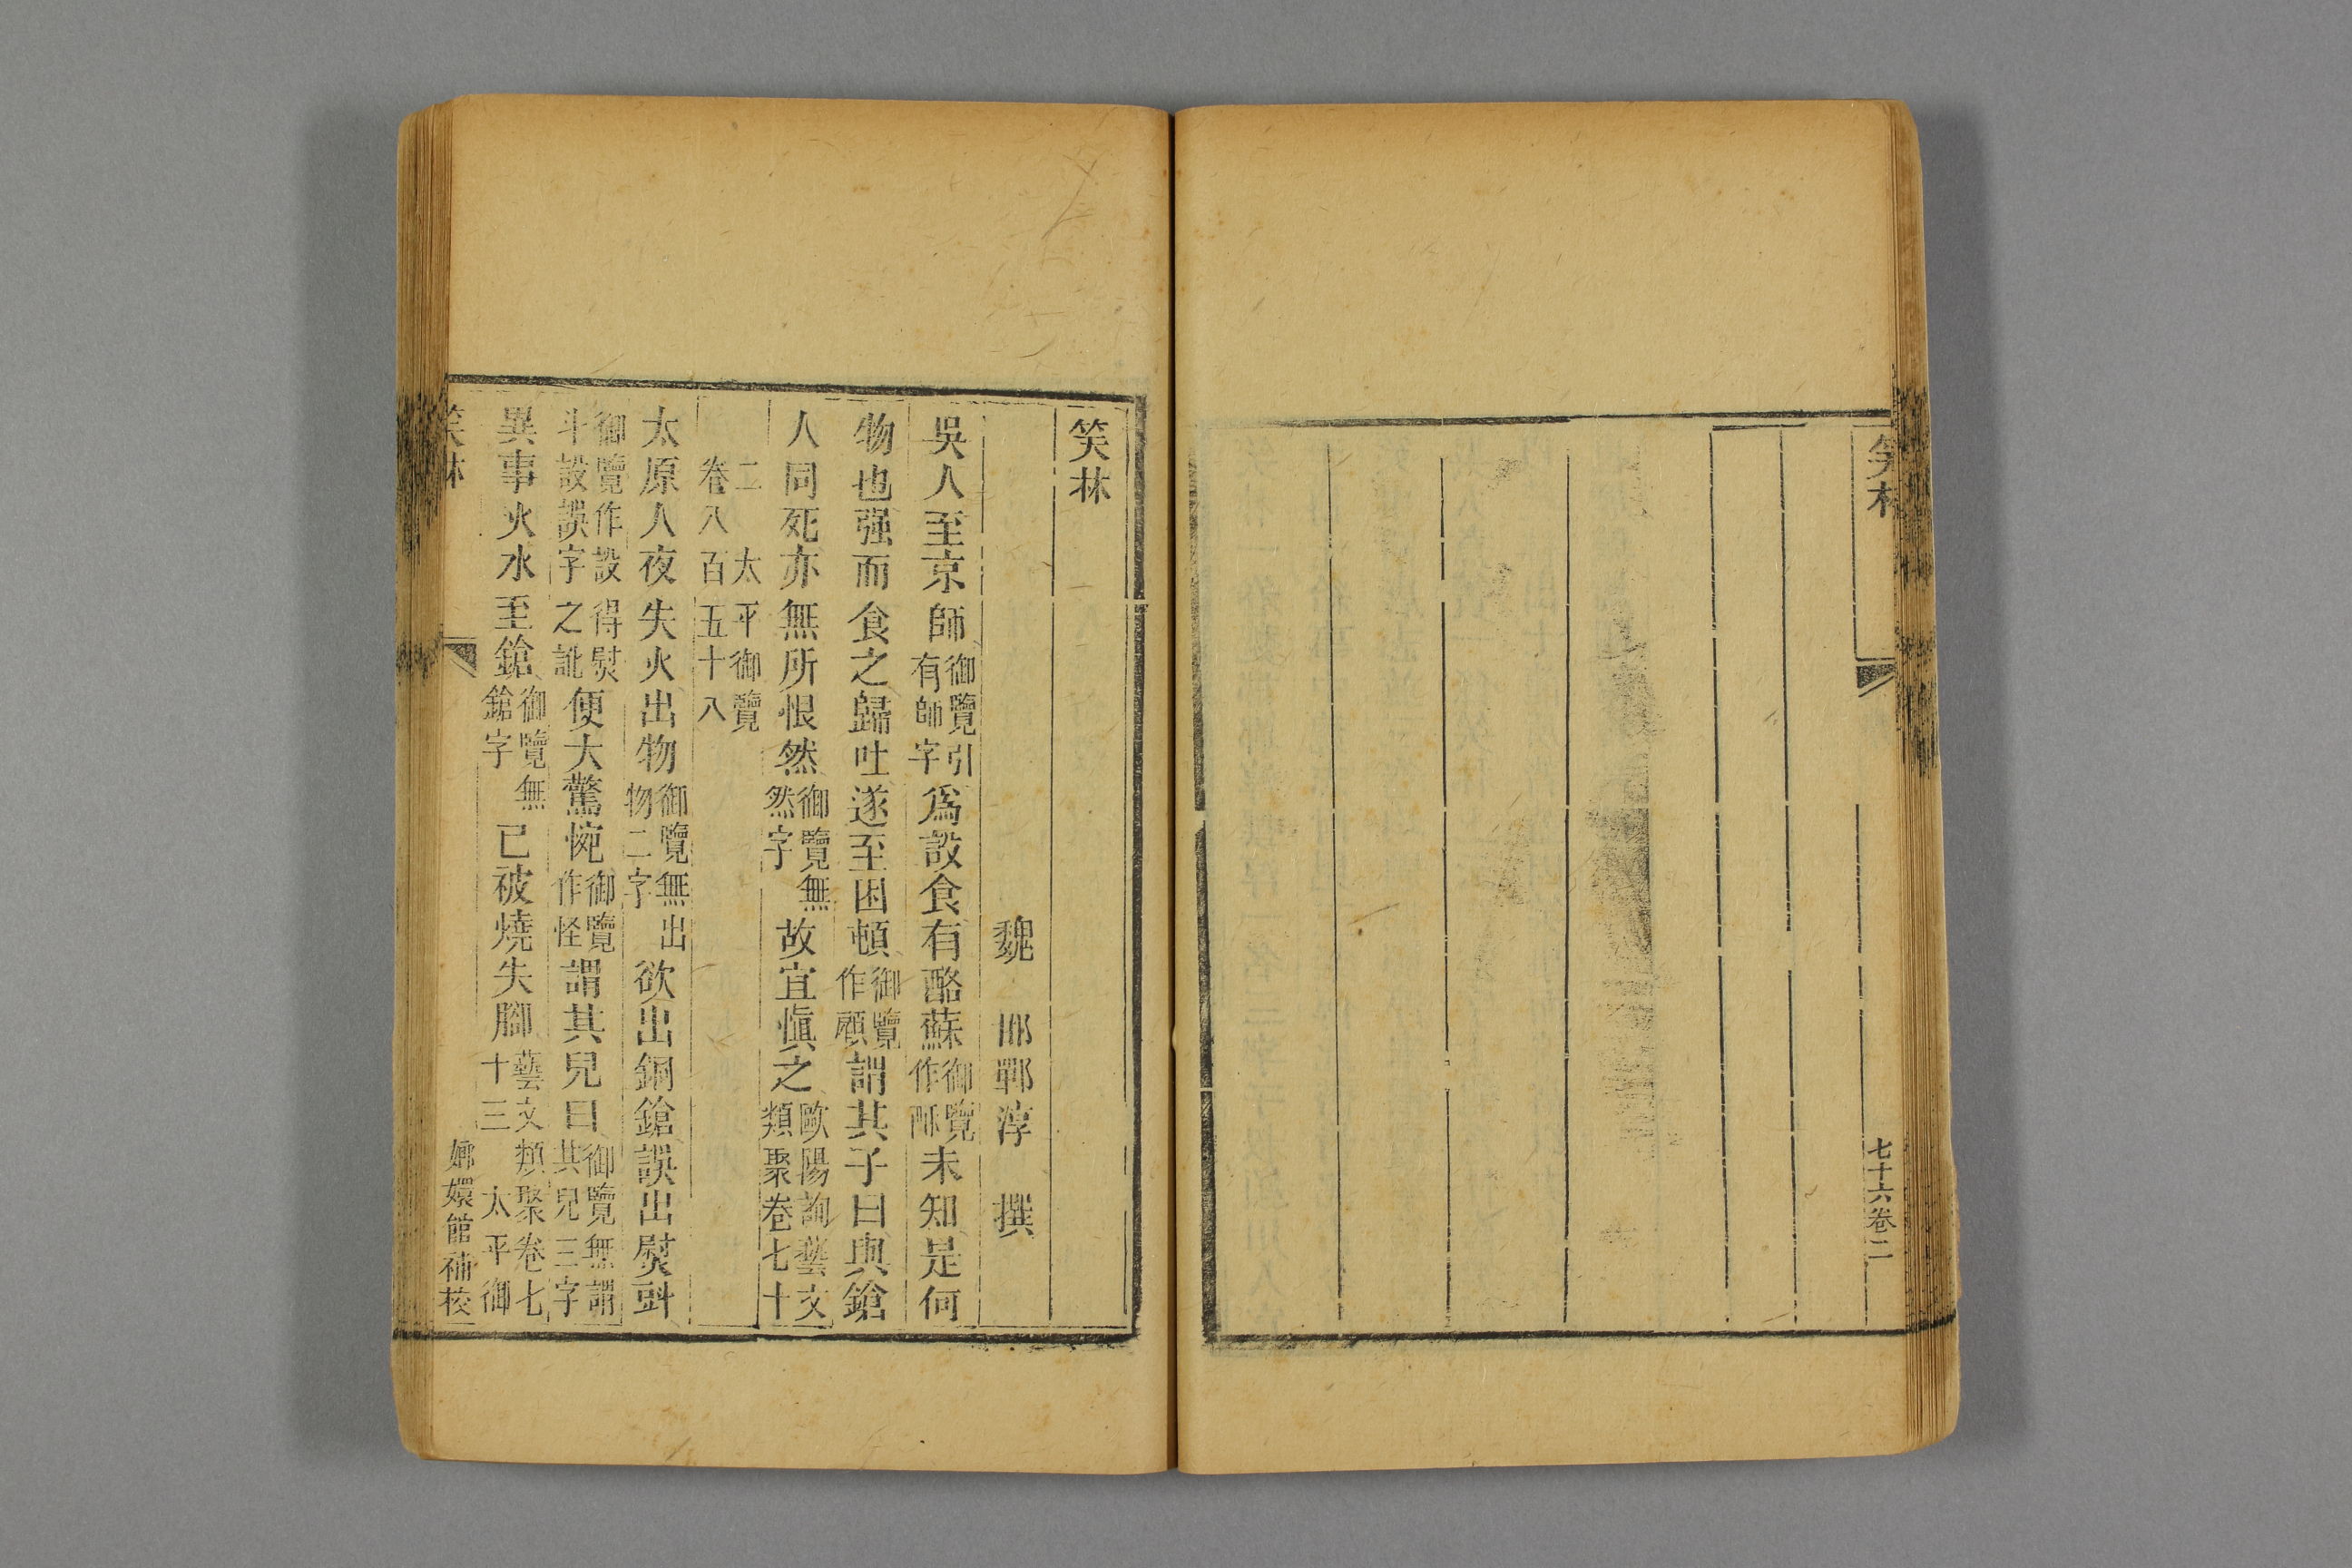 笑林
七十六卷二
笑林
魏 邯鄲淳 撰
吳人至京師御覽引有師字爲設食有酪蘇御覽作酥未知是何
物也强而食之歸吐遂至困頓御覽作顧謂其子曰與鎗
人同死亦無所恨然御覽無然字故宜愼之歐陽詢藝文類聚卷七十
二 太平御覽卷八百五十八
太原人夜失火出物御覽無出物二字欲出銅鎗誤出熨㪷
御覽作設得熨斗設誤字之訛便大驚惋御覽作怪謂其兒曰御覽無謂其兒三字
異事火水至鎗御覽無鎗字已被燒失腳藝文類聚卷七十三 太平御
笑林
嫏嬛館補校